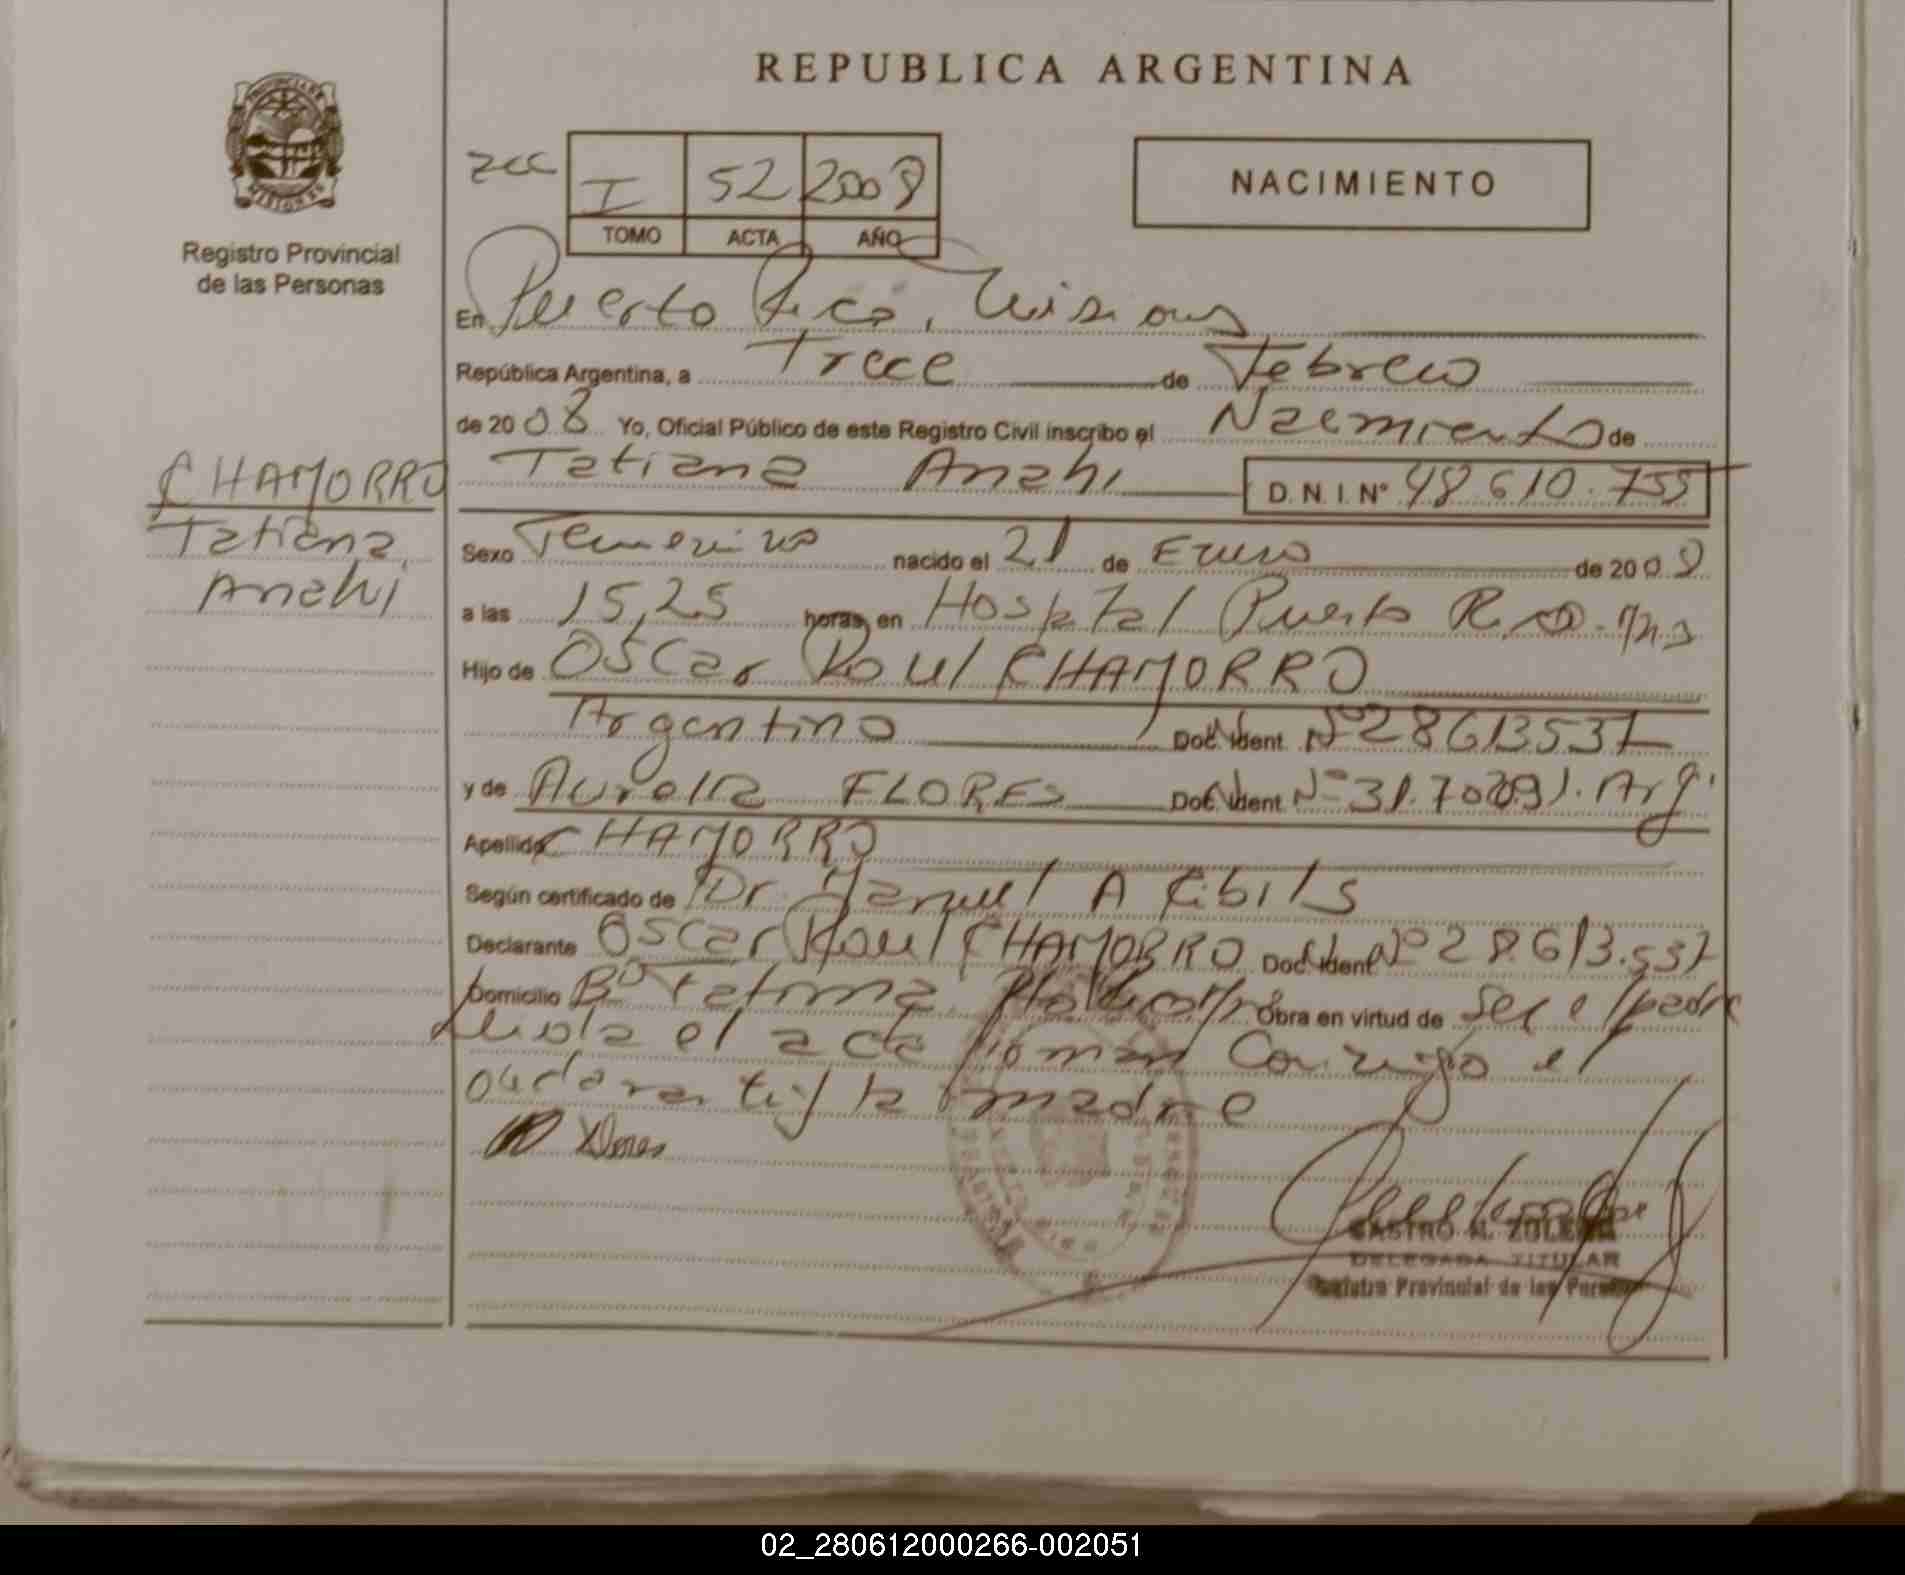 REPUBLICA ARGENTINA
PROVINCIA DE MISIONES
Registro Provincial
de las Personas
zcc I 52 2008
TOMO ACTA AÑO
NACIMIENTO
En Puerto Rico, Misiones
República Argentina, a Trece de Febrero
de 2008 Yo, Oficial Público de este Registro Civil inscribo el Nacimiento de
Tatiana Anahi D.N.I. Nº 48.610.755
CHAMORRO
Tatiana
Anahi
Sexo Femenino nacido el 21 de Enero de 2008
a las 15,25 horas en Hospital Puerto Rico. Mns
Hijo de Oscar Raul CHAMORRO
Argentino Doc. Ident Nº 28613537
y de Aurelia FLORES Doc. Ident Nº 31.70291. Arg.
Apellido CHAMORRO
Según certificado de Dr. Manuel A Cibils
Declarante Oscar Raul CHAMORRO Doc. Ident Nº 28.613.537
Domicilio Bº Fatima Obra en virtud de ser el padre
Leida el acta firman conmigo el
declarante y la madre
Flores
CASTRO M. ZULEMA
DELEGADA TITULAR
Registro Provincial de las Personas
02_280612000266-002051